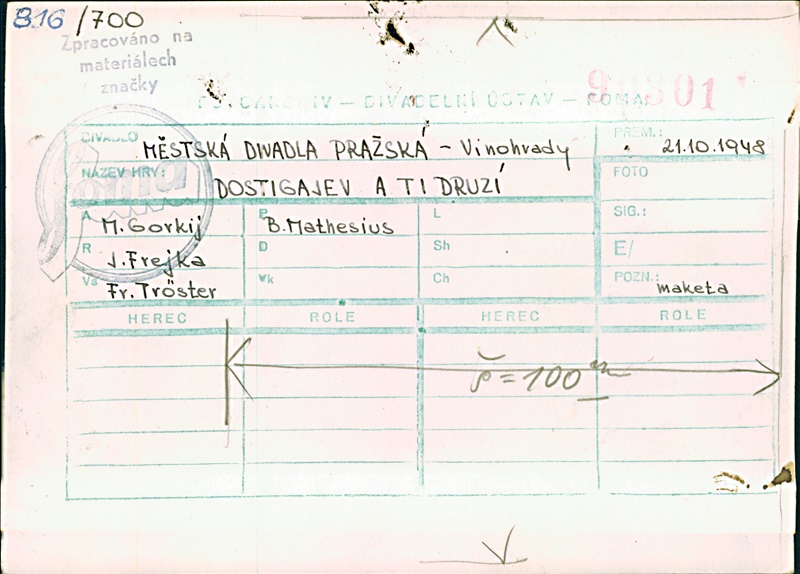 816/700
Zpracováno na
materiálech
značky
FOTOARCHIV – DIVADELNÍ ÚSTAV – FOMA
DIVADLO MĚSTSKÁ DIVADLA PRAŽSKÁ – Vinohrady PREM.: 21.10.1948
NÁZEV HRY: DOSTIGAJEV A TI DRUZÍ FOTO
A M. Gorkij P B. Mathesius L SIG.:
R J. Frejka D Sh E/
Vs Fr. Tröster Wk Ch POZN.: maketa
HEREC ROLE HEREC ROLE
š = 100